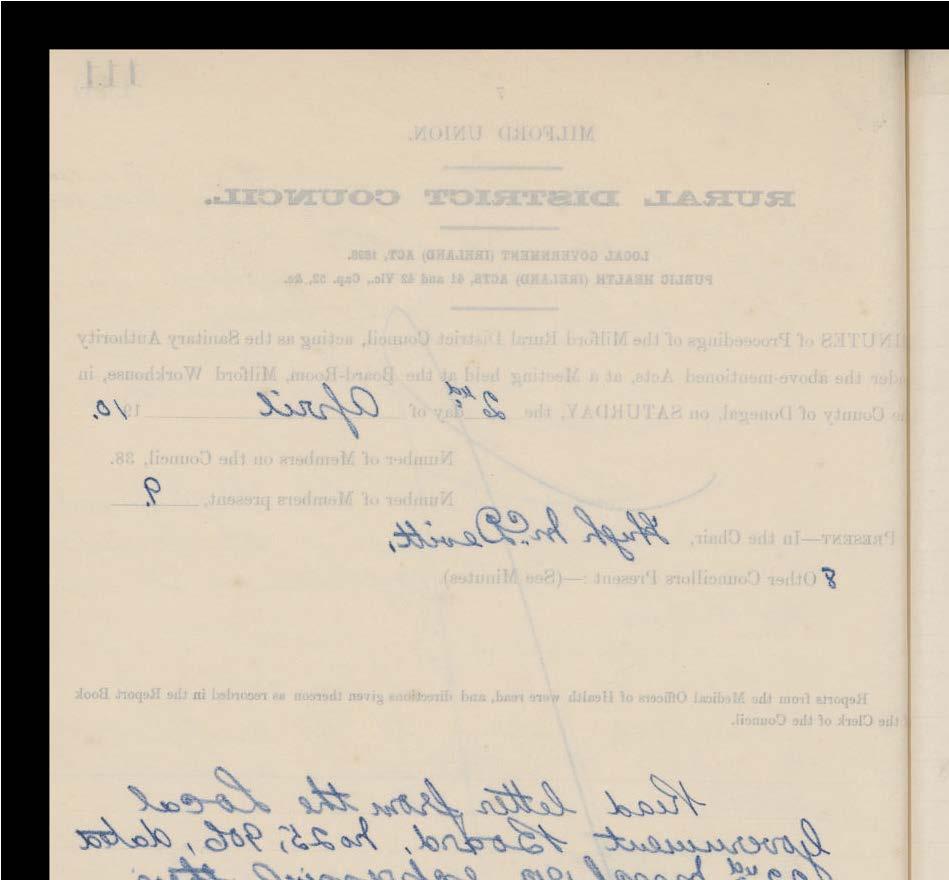 111
7
MILFORD UNION.
RURAL DISTRICT COUNCIL.
LOCAL GOVERNMENT (IRELAND) ACT, 1898.
PUBLIC HEALTH (IRELAND) ACTS, 41 and 42 Vic., Cap. 52, &c.
INUTES of Proceedings of the Milford Rural District Council, acting as the Sanitary Authority
der the above-mentioned Acts, at a Meeting held at the Board-Room, Milford Workhouse, in
e County of Donegal, on SATURDAY, the 2nd day of April 1910.
Number of Members on the Council, 38.
Number of Members present, 9.
PRESENT—In the Chair, Hugh McDevitt,
8 Other Councillors Present :—(See Minutes)
Reports from the Medical Officers of Health were read, and directions given thereon as recorded in the Report Book
the Clerk of the Council.
Read letter from the Local
Government Board, No 25,906, dated